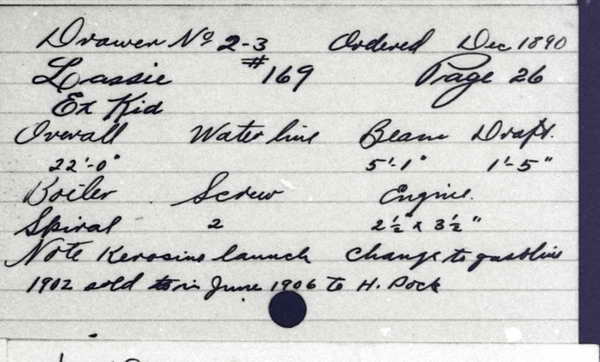 Drawer No 2-3 Ordered Dec 1890
Lassie #169 Page 26
Ex Kid
Overall Water line Beam Draft.
22'-0" 5'-1" 1'-5"
Boiler Screw Engine.
Spiral 2 2½" x 3½"
Note Kerosine launch change to gasoline
1902 sold in June 1906 to H.